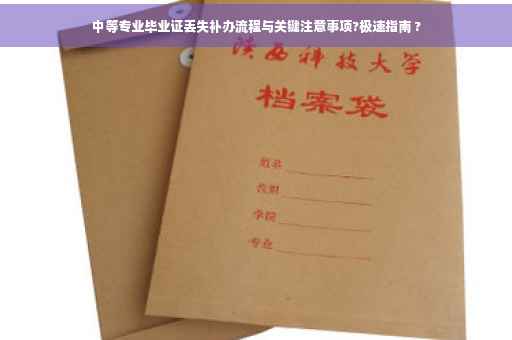 中等专业毕业证丢失补办流程与关键注意事项?极速指南?
陕西科技大学
档案袋
姓名
学院
专业